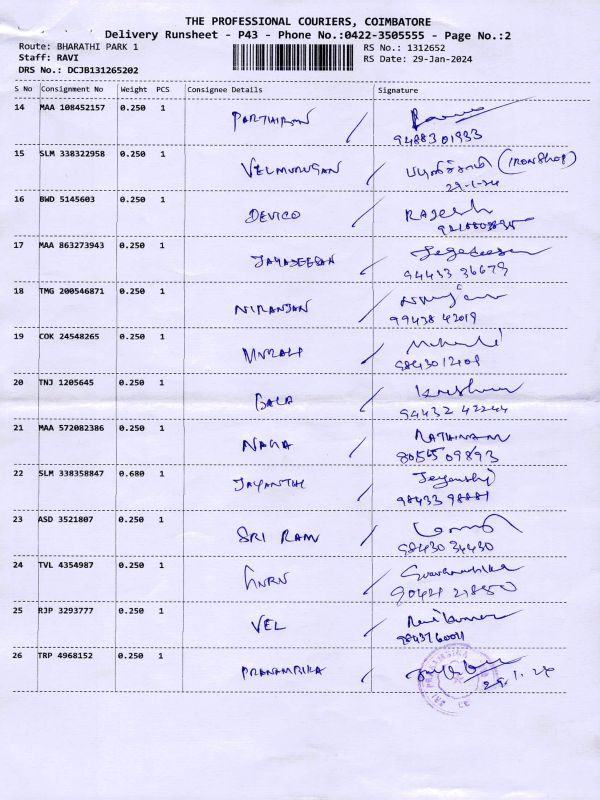 THE PROFESSIONAL COURIERS, COIMBATORE
Delivery Runsheet - P43 - Phone No.:0422-3505555 - Page No.:2
Route: BHARATHI PARK 1 RS No.: 1312652
Staff: RAVI RS Date: 29-Jan-2024
DRS No.: DCJB131265202
S No Consignment No Weight PCS Consignee Details Signature
14 MAA 108452157 0.250 1
PARTHIBAN
94883 01933
15 SLM 338322958 0.250 1
VELMURUGAN (IRON Shop)
29-1-24
16 BWD 5145603 0.250 1
DEVICO RAJESH
17 MAA 863273943 0.250 1
JAYASEELAN
94433 36679
18 TMG 200546871 0.250 1
NIRANJAN
99438 42019
19 COK 24548265 0.250 1
MURALI
20 TNJ 1205645 0.250 1
BALA Krishnan
94432 42244
21 MAA 572082386 0.250 1
NAGA RATHINAM
80565 09893
22 SLM 338358847 0.680 1
JAYANTHI Jeyanthi
98433 98881
23 ASD 3521807 0.250 1
SRI RAM
98430 34430
24 TVL 4354987 0.250 1
90421 21850
25 RJP 3293777 0.250 1
VEL Ravikumar
26 TRP 4968152 0.250 1
PRANAMBIKA
29.1.24